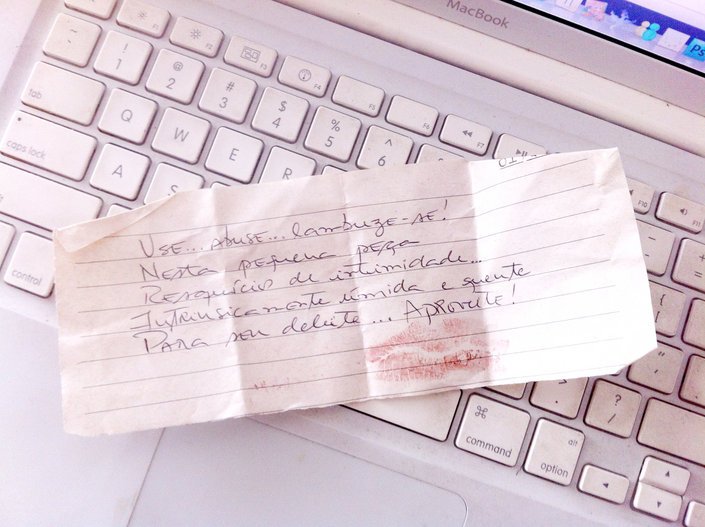 MacBook
Ps
F1
F2
F3
F4
F5
F6
F7
F10
! 1
@ 2
# 3
$ 4
% 5
^ 6
tab
Q
W
E
R
caps lock
A
S
control
USE... ABUSE... lambuze-se!
Nesta pequena peça
Resquícios de intimidade...
Intrinsicamente umida e quente
Para seu deleite... Aproveite!
? /
⌘ command
alt option